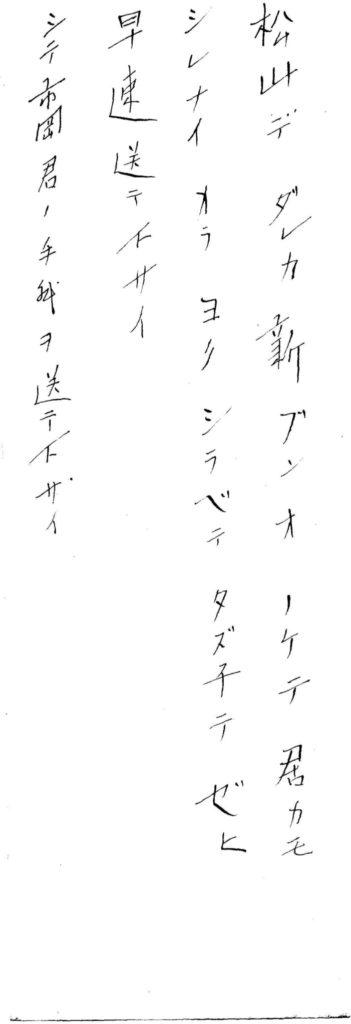 松山デ ダレカ 新 ブンオ ノケテ 居カモ
シレナイ オラ ヨク シラベテ タズ子テ ゼヒ
早速送テ下サイ
シテ 市岡君ノ手我ヲ送テ下サイ